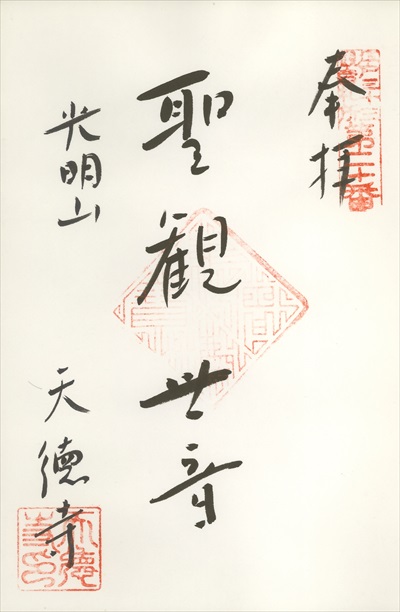 奉拝
聖観世音
光明山
天徳寺